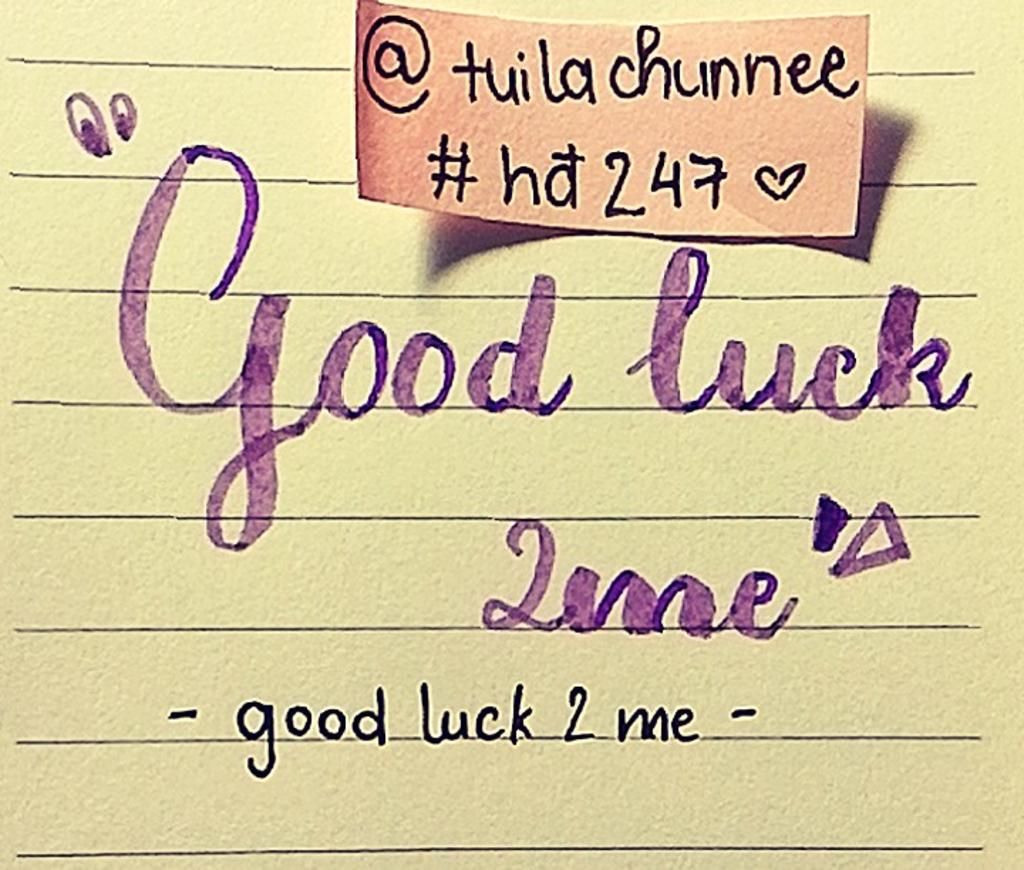 @tuilachunnee
#hđ247 ♡
"Good luck
2me"
- good luck 2 me -